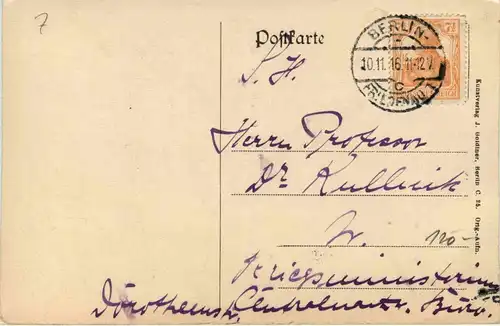 7
Postkarte
BERLIN-
10.11.16.11-12V.
c
FRIEDENAU 1
7½
S. H.
Herrn Professor
Dr Kullnick
W.
Kriegsministerium
Dorotheenstr.
Büro.
Kunstverlag J. Goldiner, Berlin C. 25. Orig.-Aufn.